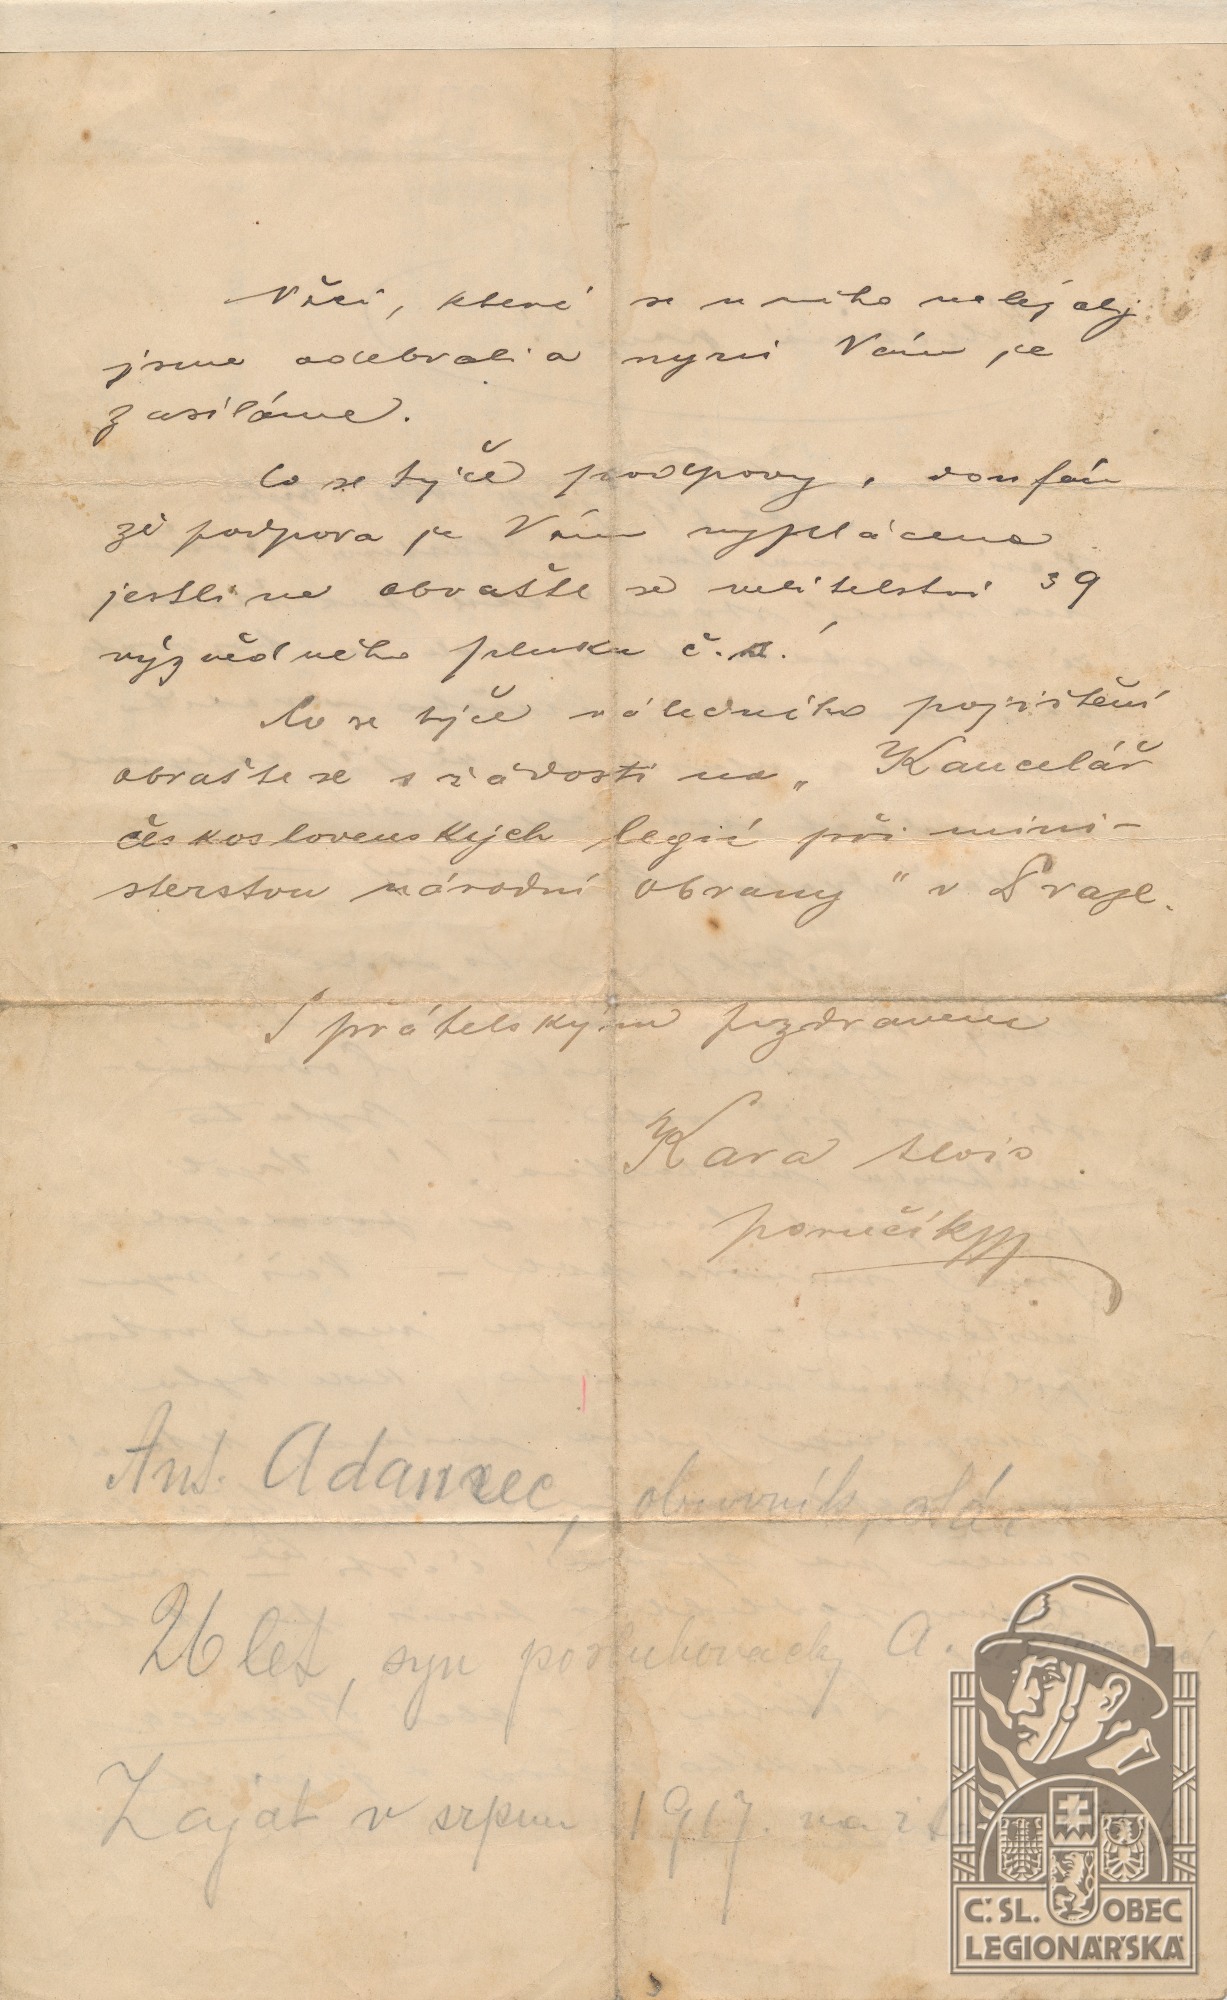 Věci, které se u něho nalézaly
jsme odebrali a nyni Vám je
zasíláme.
Co se týče podpory, doufám
že podpora je Vám vyplácena
jestli ne obraťte se velitelství 39
výzvědného pluku č.s.!
Co se týče válečního pojištění
obraťte se s žádostí na „Kancelář
československých legií při mini-
sterstvu národní obrany" v Praze.
S přátelským pozdravem
Kara Alois
poručík
Ant. Adamec, obuvník, stár
26 let, syn posluhovačky A.
Zajat v srpnu 1917 na it.
Č.SL. OBEC
LEGIONÁŘSKÁ